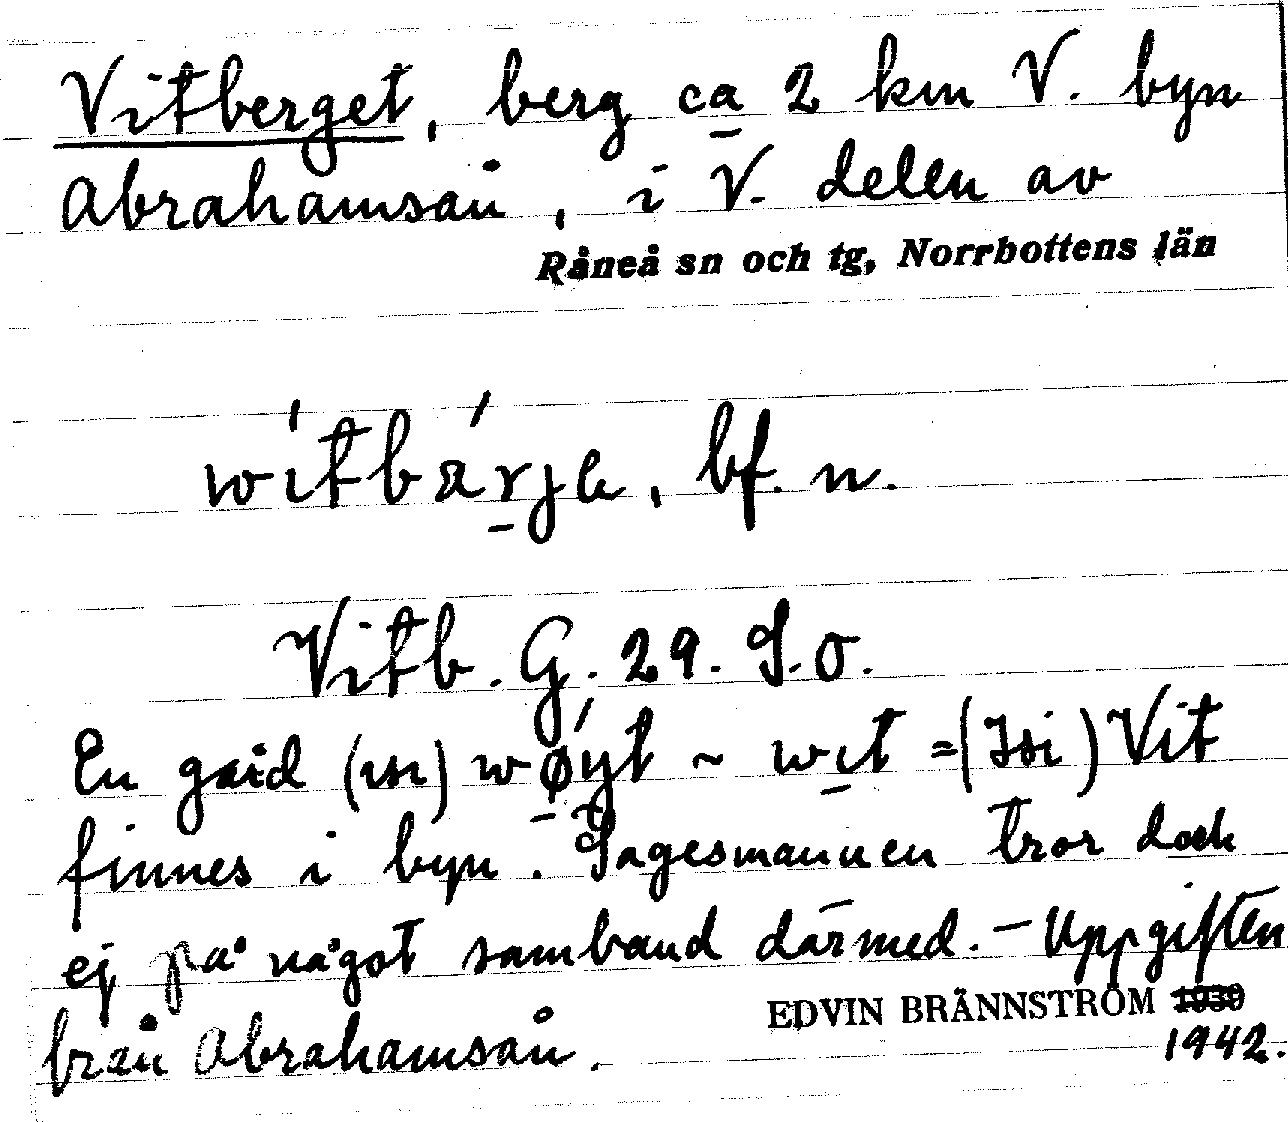 Vitberget, berg ca 2 km V. byn
Abrahamsån, i V. delen av
Råneå sn och tg, Norrbottens län
wítbä́rjɘ, bf. n.
Vitb. G. 29. S.o.
En gård (m) wøyt ~ wit =( ) Vit
finnes i byn. Sagesmannen tror dock
ej på något samband därmed. – Uppgiften
från Abrahamsån.
EDVIN BRÄNNSTRÖM 1939
1942.